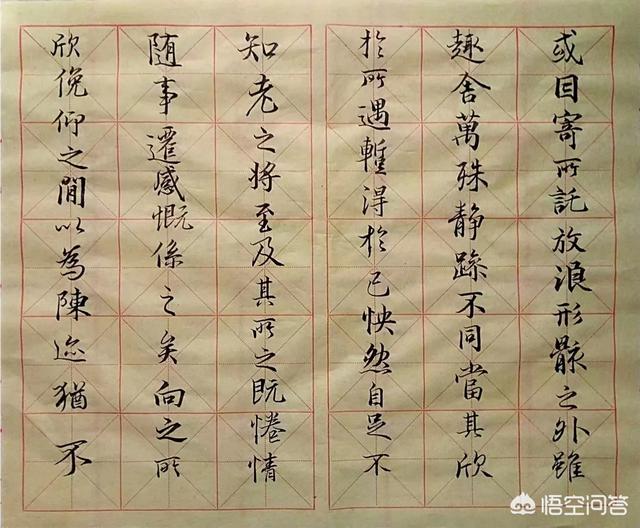 或因寄所託放浪形骸之外雖
趣舍萬殊静躁不同當其欣
於所遇暫得於己怏然自足不
知老之将至及其所之既惓情
随事遷感慨係之矣向之所
欣俛仰之間以為陳迹猶不
悟空问答